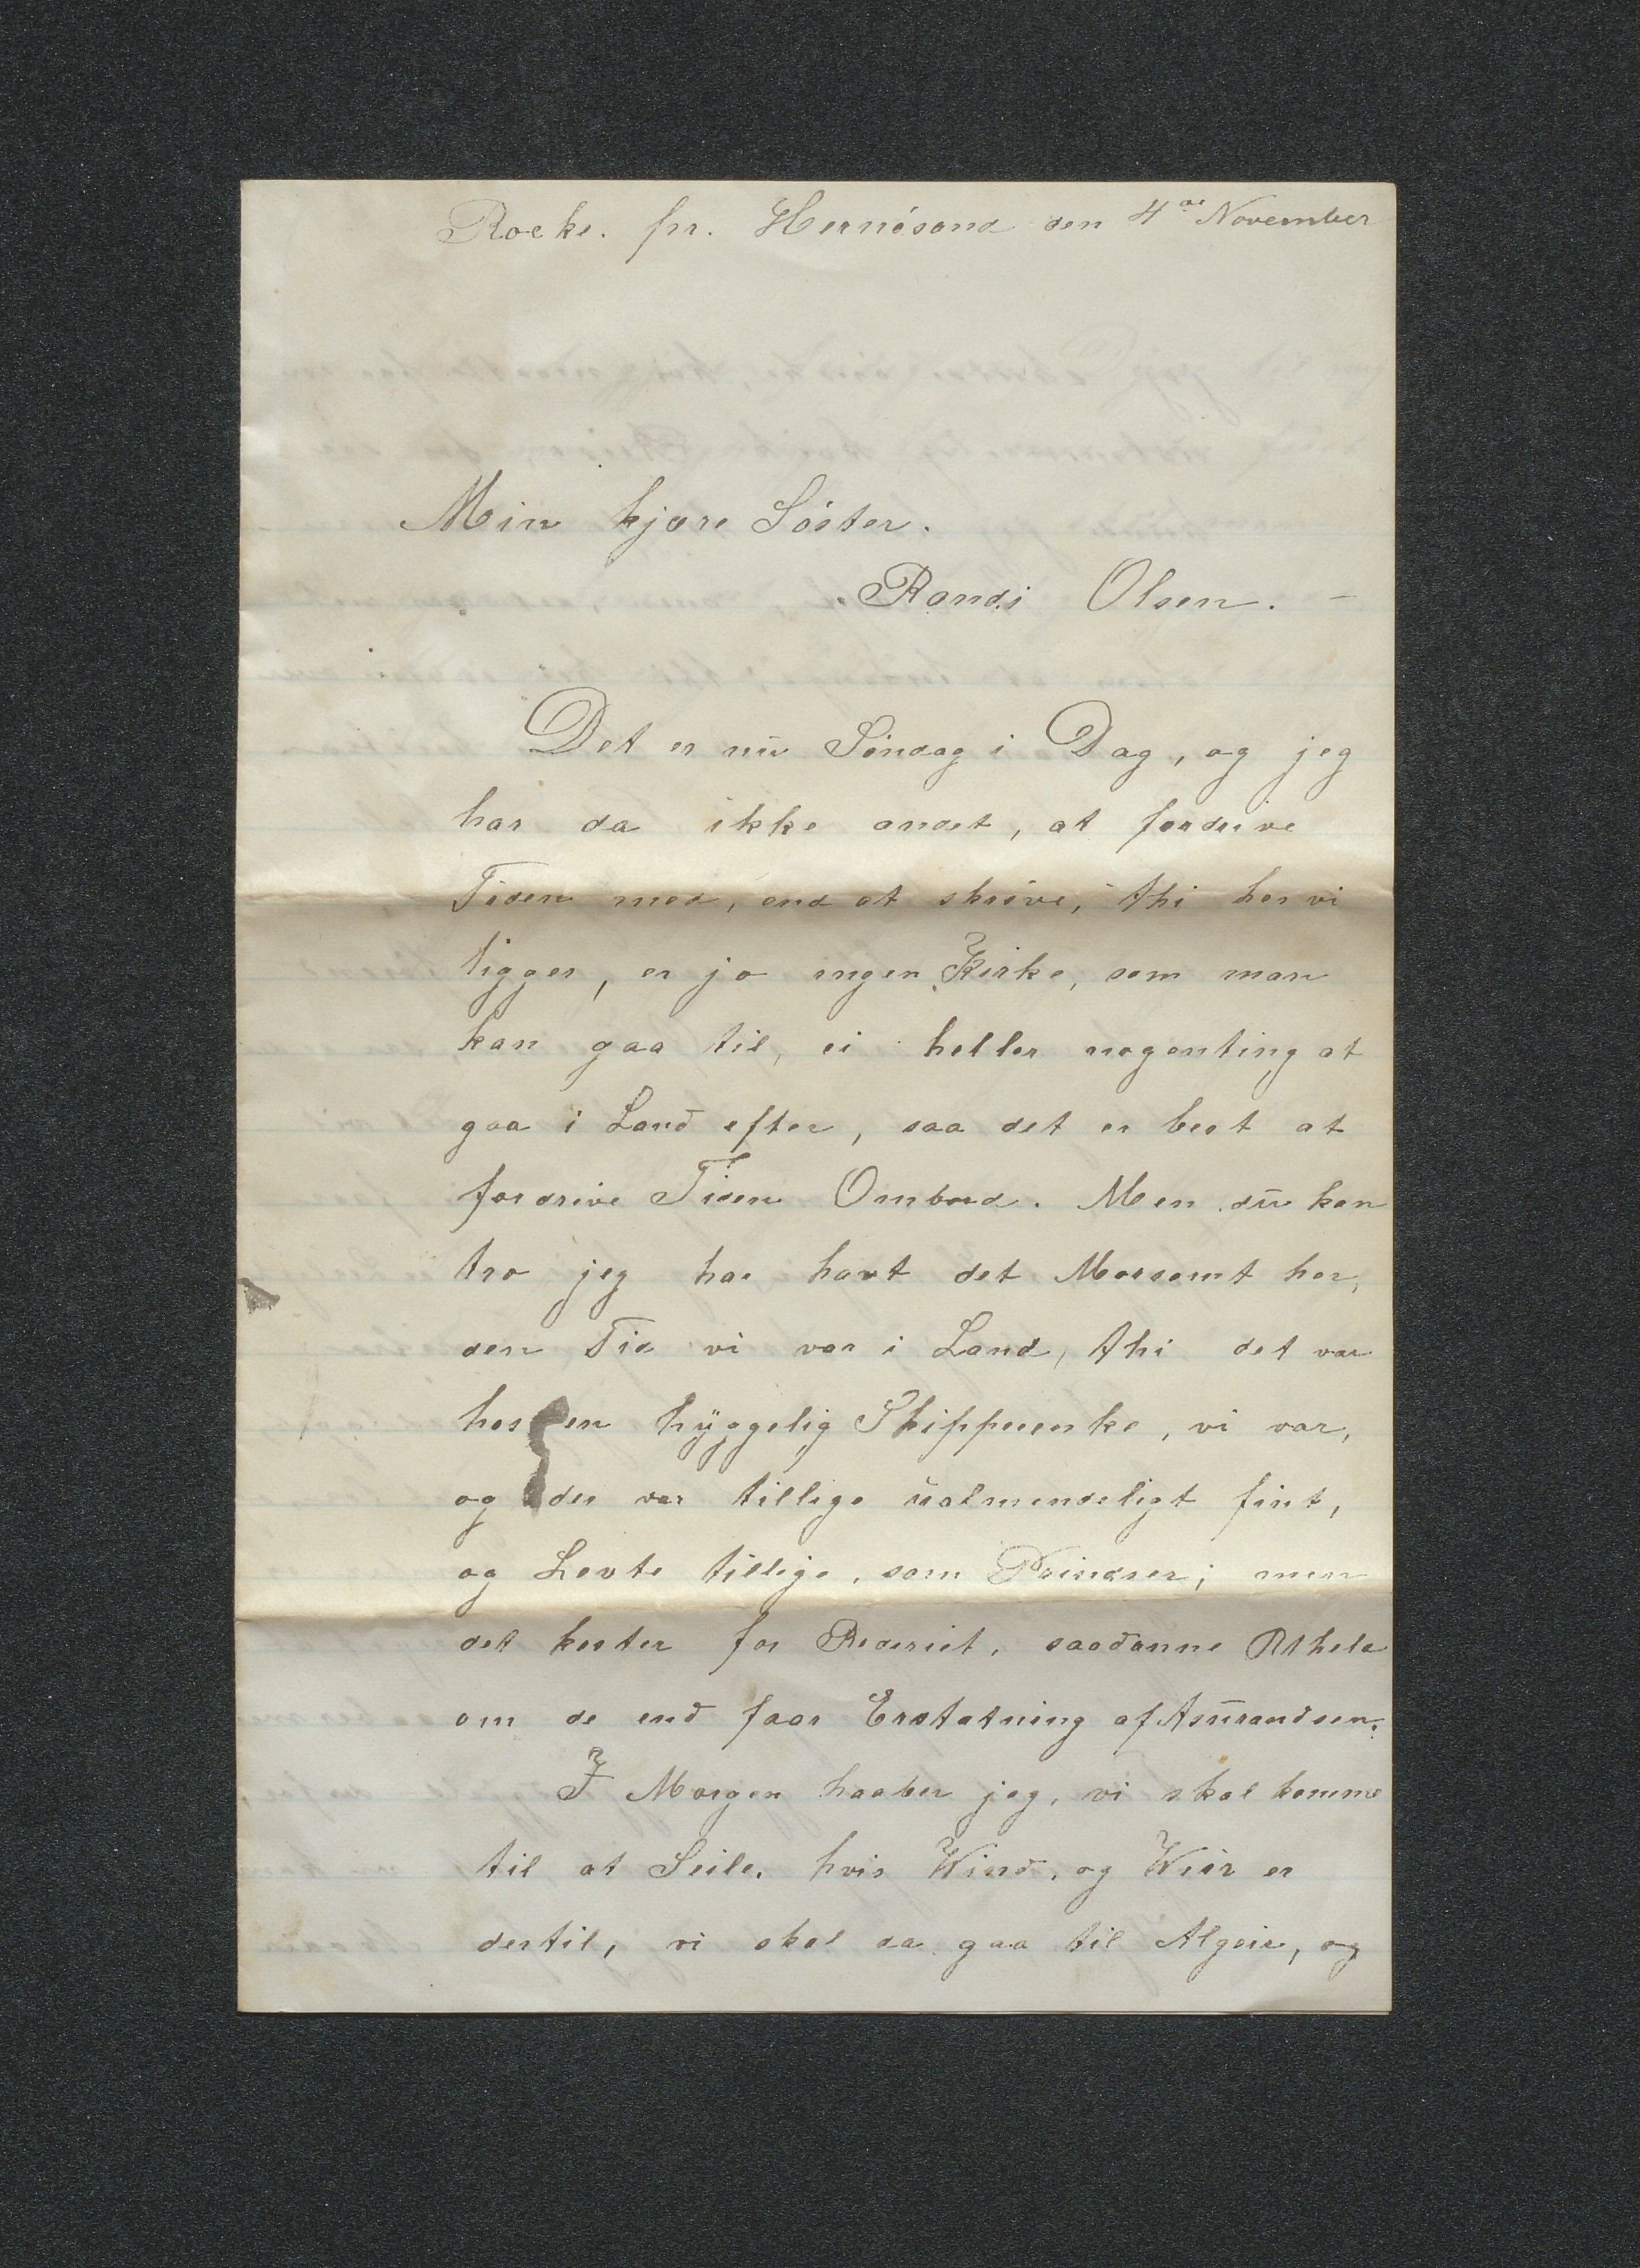 Rocke. pr. Hernösand den 4de November
Min kjære Söster.
Randi Olsen. -
Det er nu Söndag i Dag, og jeg
har da ikke andet, at fordrive
Tiden med, end at skrive, thi her vi
ligger, er jo ingen Kirke, som man
kan gaa til, ei heller nogenting at
gaa i Land efter, saa det er best at
fordrive Tiden Ombord. Men du kan
tro jeg har havt det Morsomt her,
den Tid vi var i Land, thi det var
hos en hyggelig Skipperenke, vi var,
og der var tillige ualmindeligt fint,
og Levte tillige, som Prindser; men
det koster for Rederiet, saadanne
om de end faar Erstatning af Asurandsen.
I Morgen haaber jeg, vi skal komme
til at Seile, hvis Wind, og Weir er
dertil, vi skal da gaa til Algeir, og